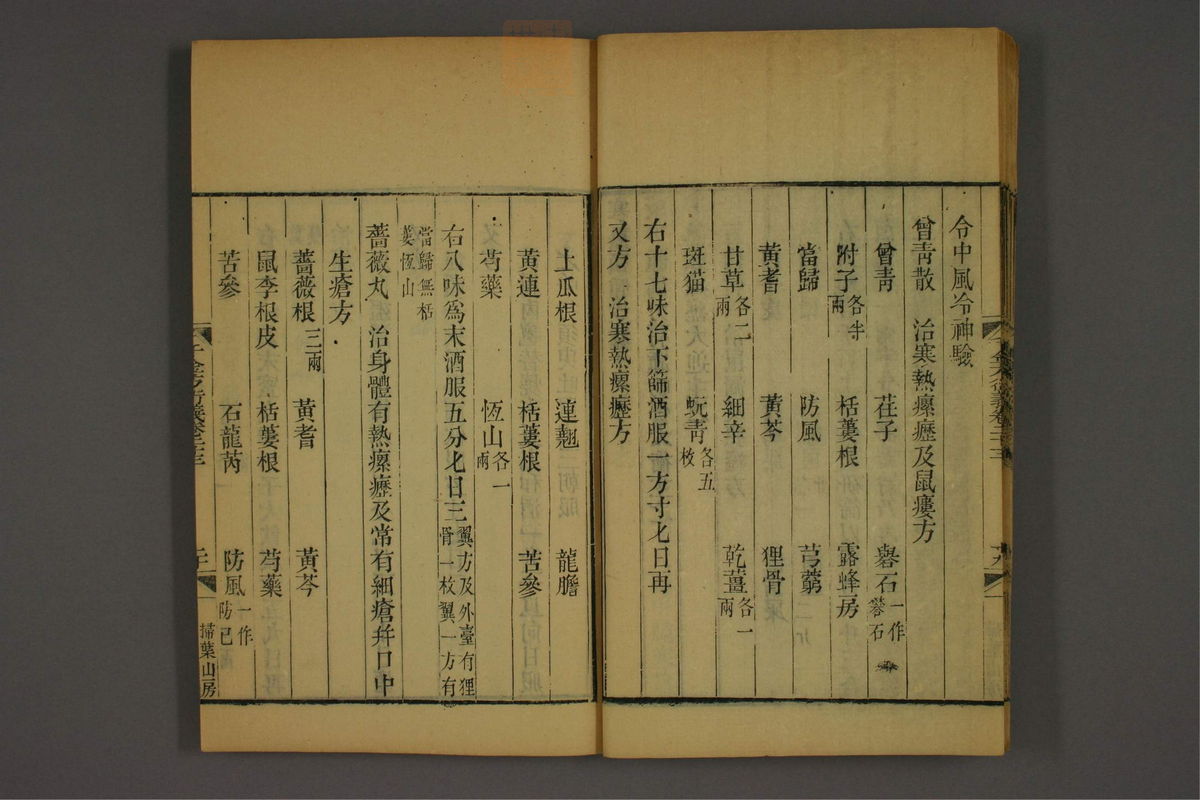 令中風冷神驗
曾青散 治寒熱瘰癧及鼠瘻方
曾青 荏子 礜石一作礬石
附子各半兩 栝蔞根 露蜂房
當歸 防風 芎藭
黃耆 黃芩 狸骨
甘草各二兩 細辛 乾薑各一兩
斑猫 蚖青各五枚
右十七味治下篩酒服一方寸匕日再
又方 治寒熱瘰癧方
土瓜根 連翹 龍膽
黃連 栝蔞根 苦參
芍藥 恆山各一兩
右八味爲末酒服五分匕日三翼方及外臺有狸骨一枚翼一方有
當歸無栝蔞恆山
薔薇丸 治身體有熱瘰癧及常有細瘡并口中
生瘡方
薔薇根三兩 黃耆 黃芩
鼠李根皮 栝蔞根 芍藥
苦參 石龍芮 防風一作防己
掃葉山房